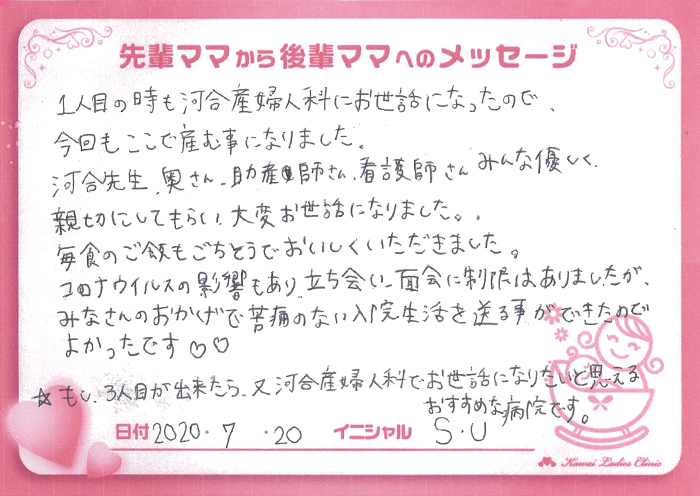 先輩ママから後輩ママへのメッセージ
1人目の時も河合産婦人科にお世話になったので、
今回もここで産む事になりました。
河合先生、奥さん、助産師さん、看護師さん みんな優しく、
親切にしてもらい、大変お世話になりました。
毎食のご飯もごちそうでおいしくいただきました。
コロナウイルスの影響もあり、立ち会い、面会に制限はありましたが、
みなさんのおかげで苦痛のない入院生活を送る事ができたので
よかったです♡♡
☆もし、3人目が出来たら、又河合産婦人科でお世話になりたいと思える
おすすめな病院です。
日付 2020・7・20 イニシャル S・U
Kawai Ladies Clinic